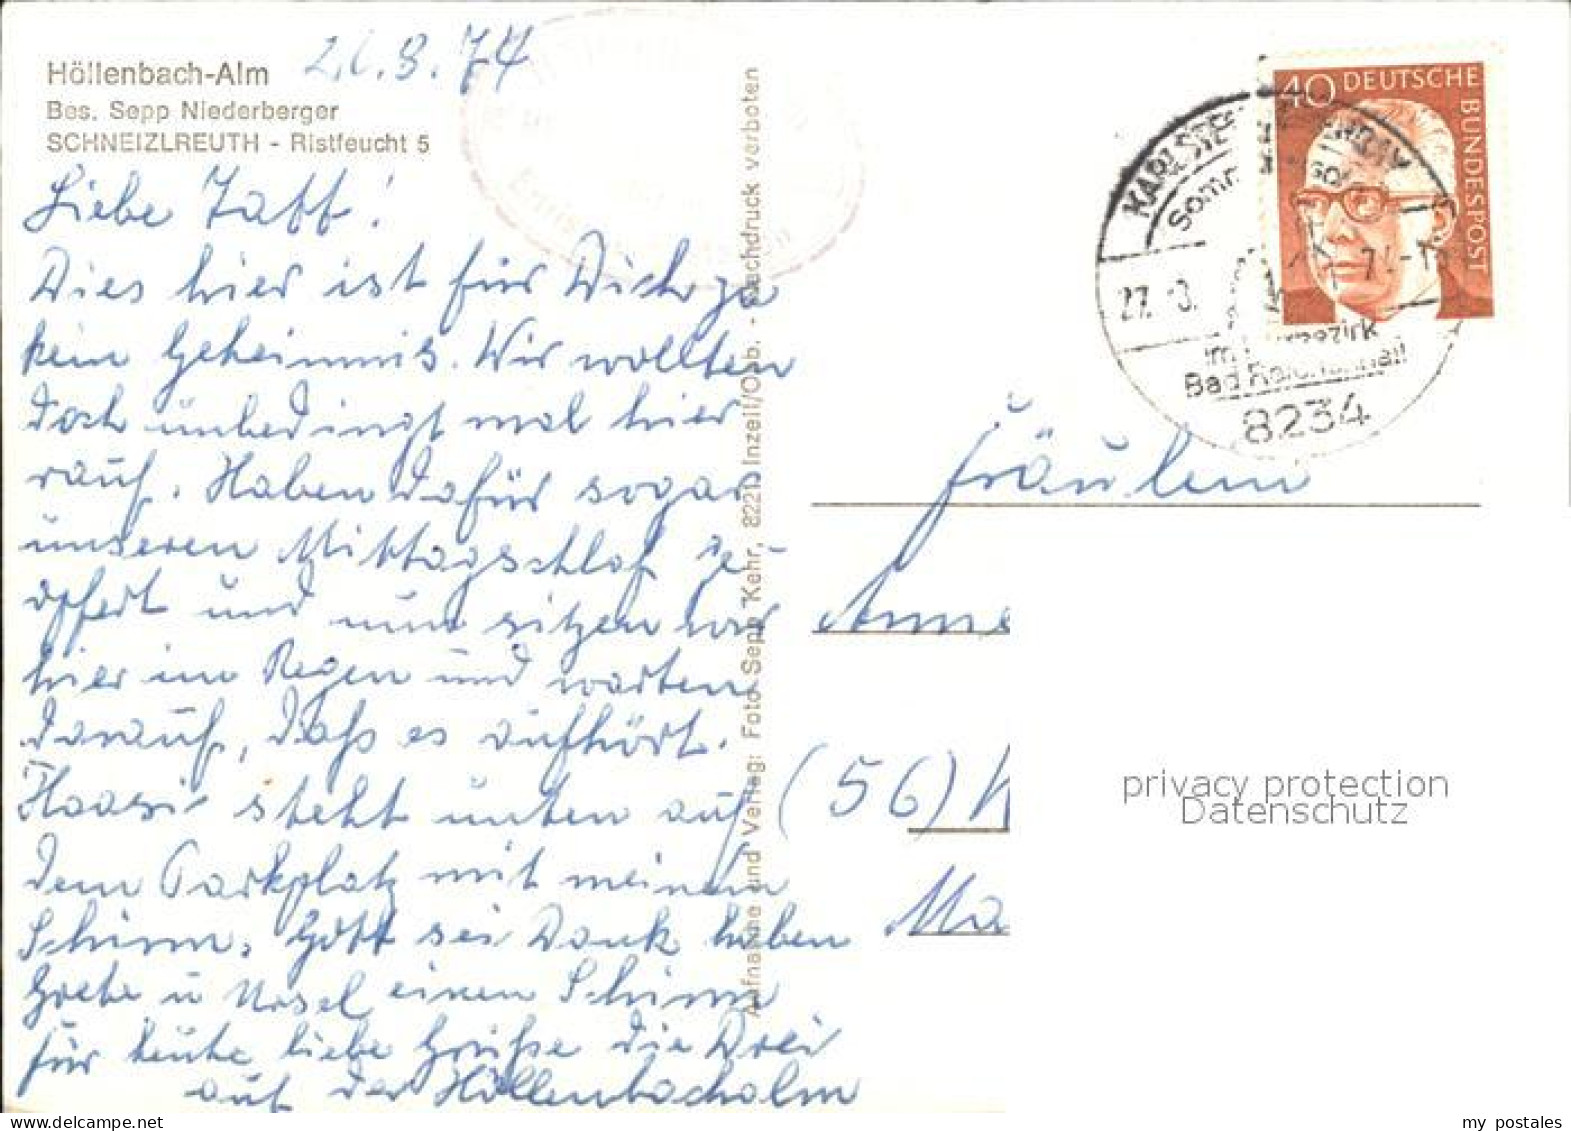 Höllenbach-Alm
Bes. Sepp Niederberger
SCHNEIZLREUTH - Ristfeucht 5
26.8.74
Liebe Taff!
Dies hier ist für Dich ja
kein Geheimnis. Wir wollten
doch unbedingt mal hier
rauf. Haben dafür sogar
unseren Mittagsschlaf ge-
opfert und nun sitzen wir
hier im Regen und warten
darauf, daß es aufhört.
steht unten auf
dem Parkplatz mit meinem
Schirm. Gott sei Dank haben
Grete u Ursel einen Schirm
für heute liebe Grüße die Drei
auf der Höllenbachalm
Aufnahme und Verlag: Foto Sepp Kehr, 8221 Inzell/Obb. - Nachdruck verboten
40 DEUTSCHE
BUNDESPOST
27. 8. 74-15
Bad Reichenhall
8234
Fräulein
Anne
(56)
Ma
privacy protection
Datenschutz
my_postales